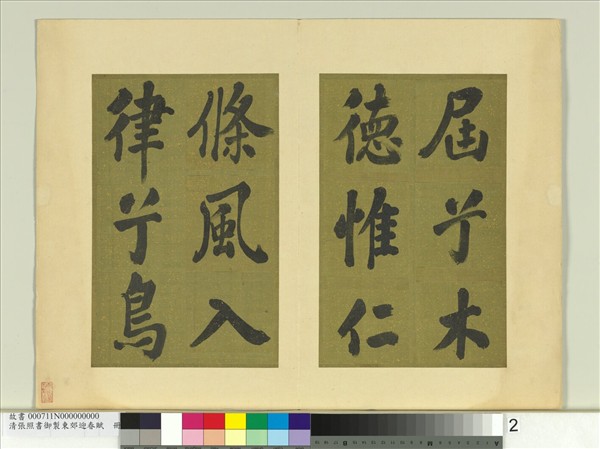 屆兮木
德惟仁
條風入
律兮鳥
故書 000711N000000000
清張照書御製東郊迎春賦 冊
2